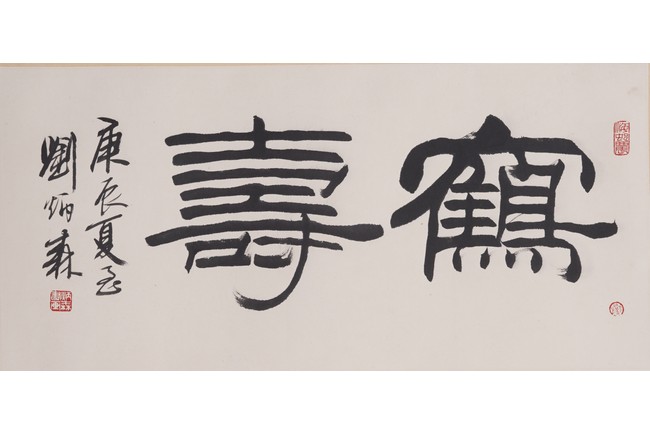 鶴壽
庚辰夏至
劉炳森